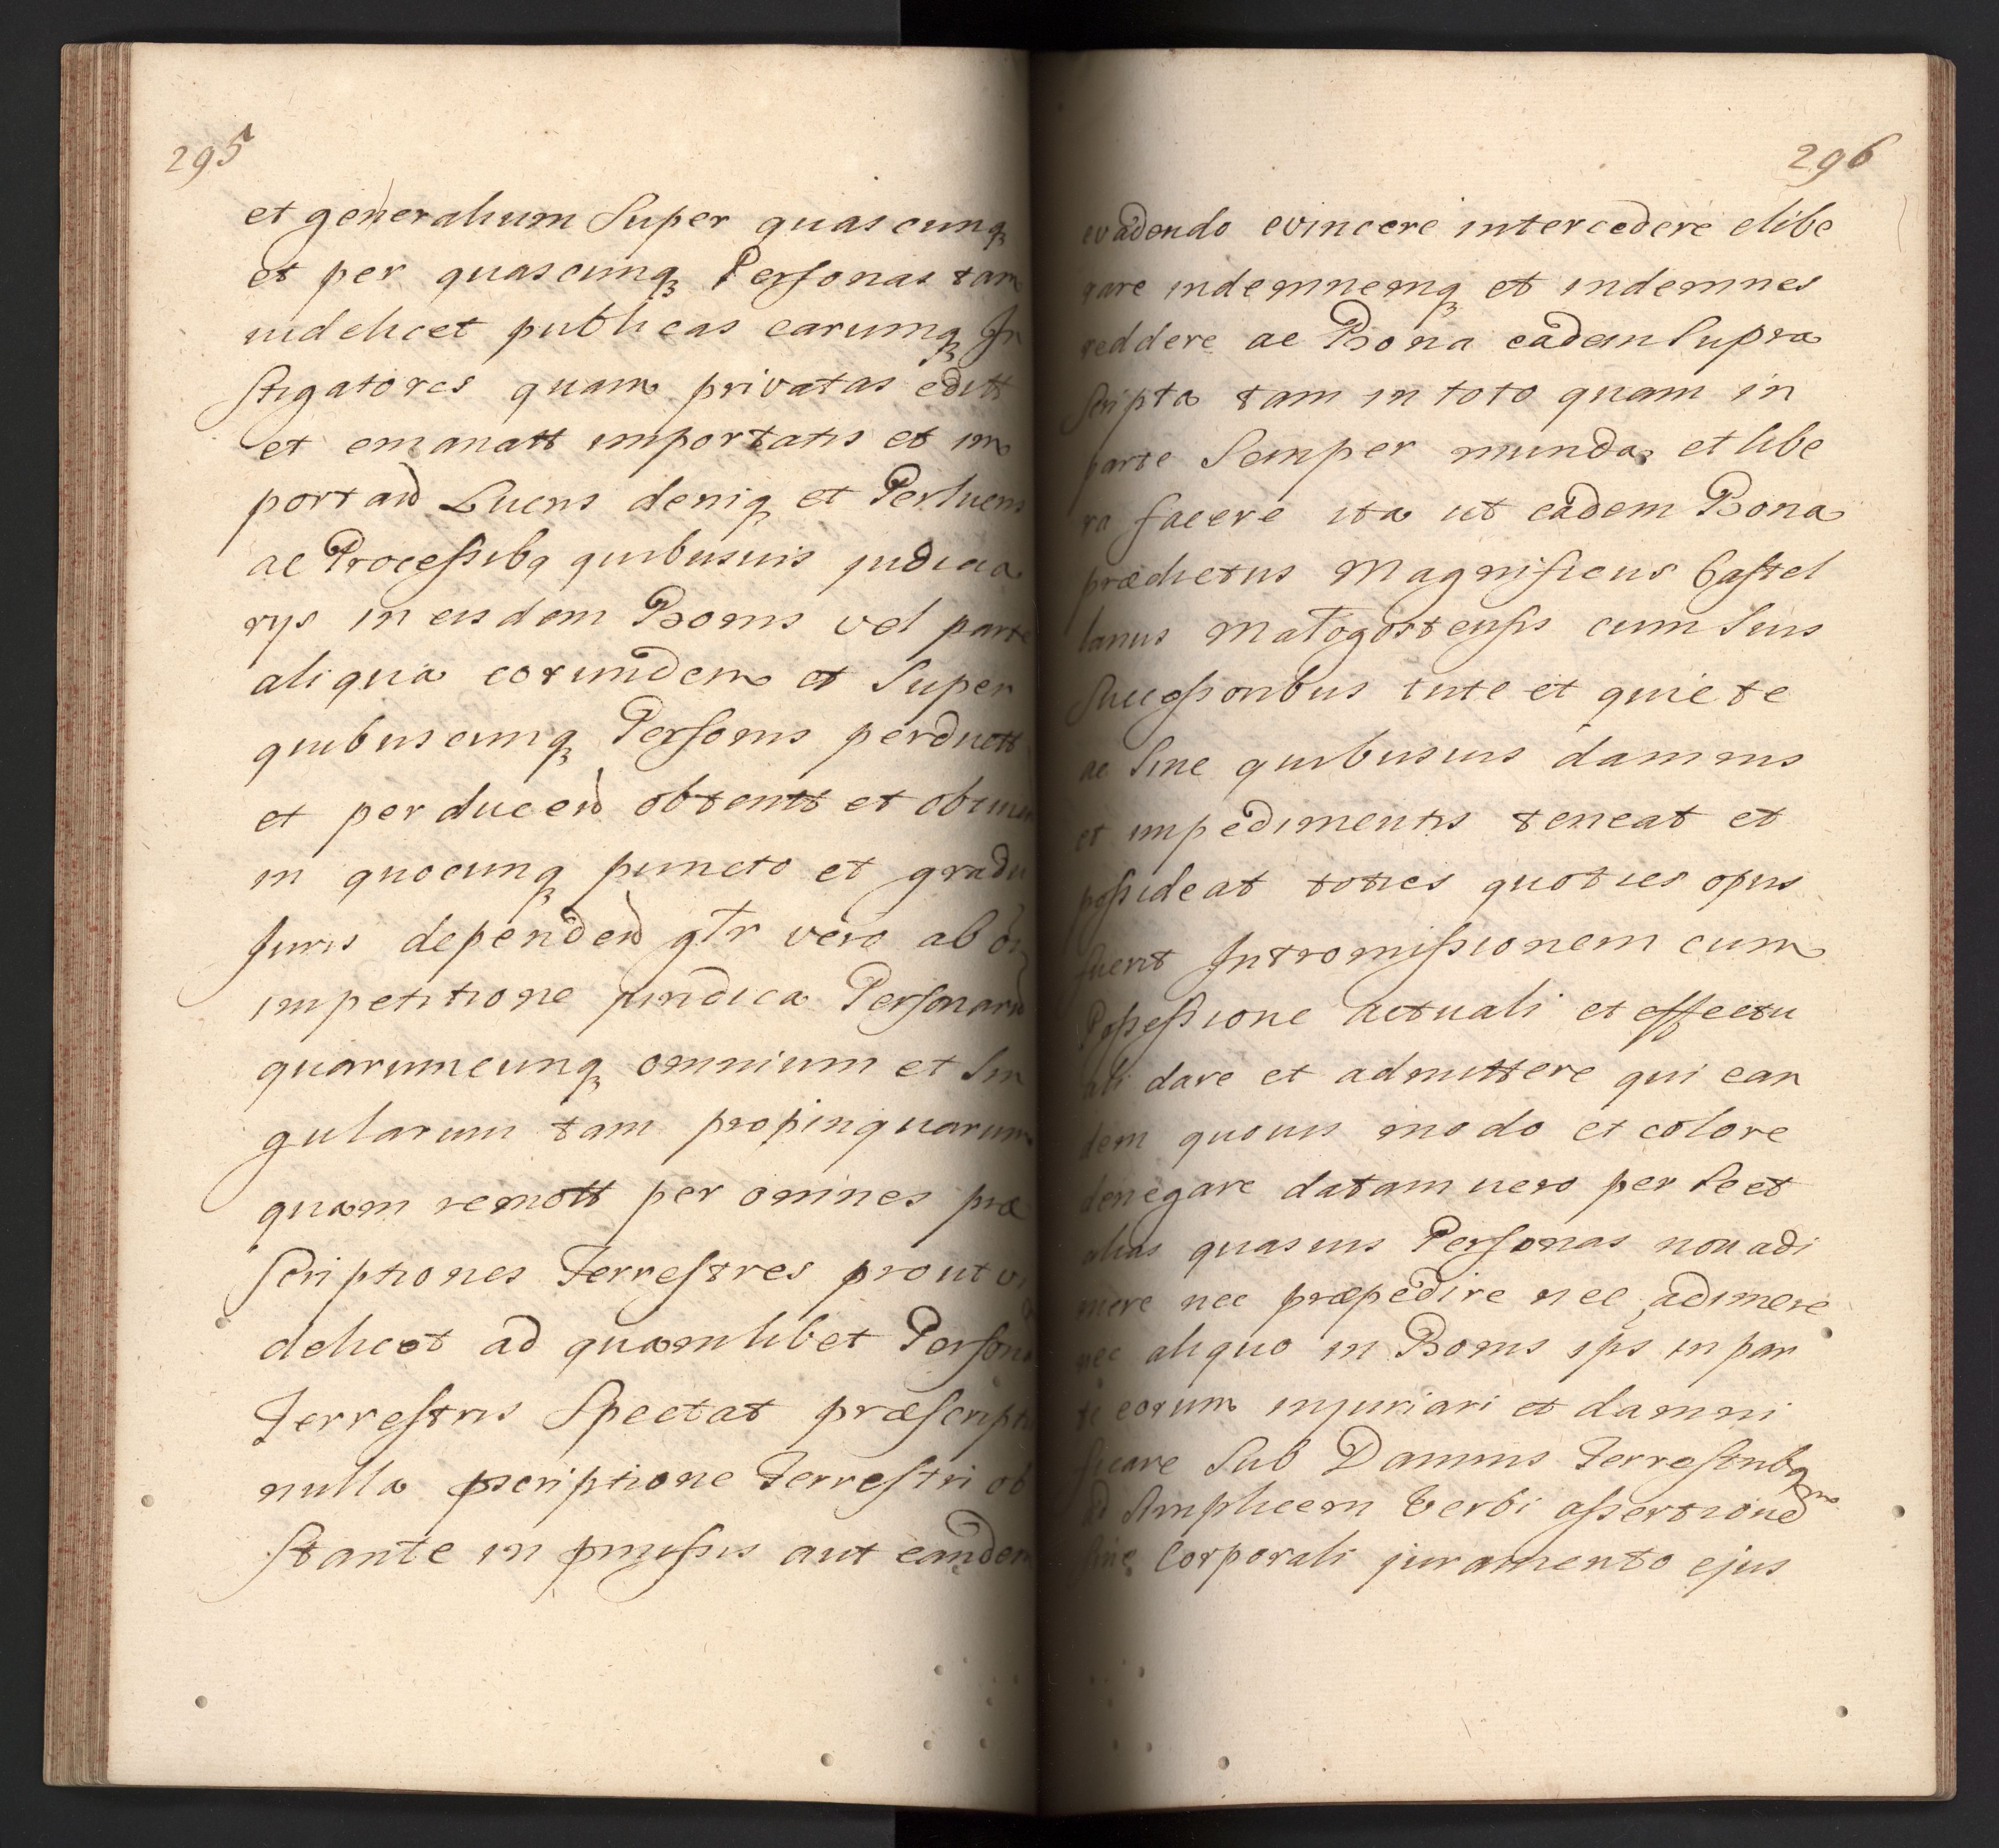 295
et generalium Super quascunq₃
et per quascunq₃ Personas tam
videlicet publicas earumq₃ In
stigatores quam privatas editt
et emanatt importatis et im
portand Lucris deniq₃ et Perlucris
ac Processibq quibusuis judicia
rys in eisdem Bonis vel parte
aliqua eorundem et Super
quibuscunq₃ Personis perductt
et perducend obtentt et obtinen
in quocunq₃ puncto et gradu
Juris dependend gtr vero ab
impetitione juridica Personarum
quarumcunq₃ omnium et Sin
gularum tam propinquarum
quam remott per omnes præ
scriptiones Terrestres prout vi
delicet ad quamlibet Person
Terrestris Spectat præscript
nulla pscriptione Terrestri ob
stante in pmissis aut eandem
296
evadendo evincere intercedere elibe
rare indemnemq₃ et indemnes
reddere ac Bona eadem Supra
scripta tam in toto quam in
parte Semper munda et libe
ra facere ita ut eadem Bona
prædictus Magnificus Castel
lanus Małogostensis cum Suis
Successoribus tute et quiete
ac Sine quibusuis damnis
et impedimentis teneat et
possideat toties quoties opus
fuerit Intromissionem cum
Possessione actuali et effectu
ali dare et admittere qui ean
dem quouis modo et colore
denegare datam uero per Se et
alias quasuis Personas non adi
mere nec præpedire nec adimere
nec aliquo in Bonis ips in par
te eorum injuriari et damni
ficare Sub Damnis Terrestribq
ad Simplicem Verbi assertioned
Sine Corporali juramento ejus